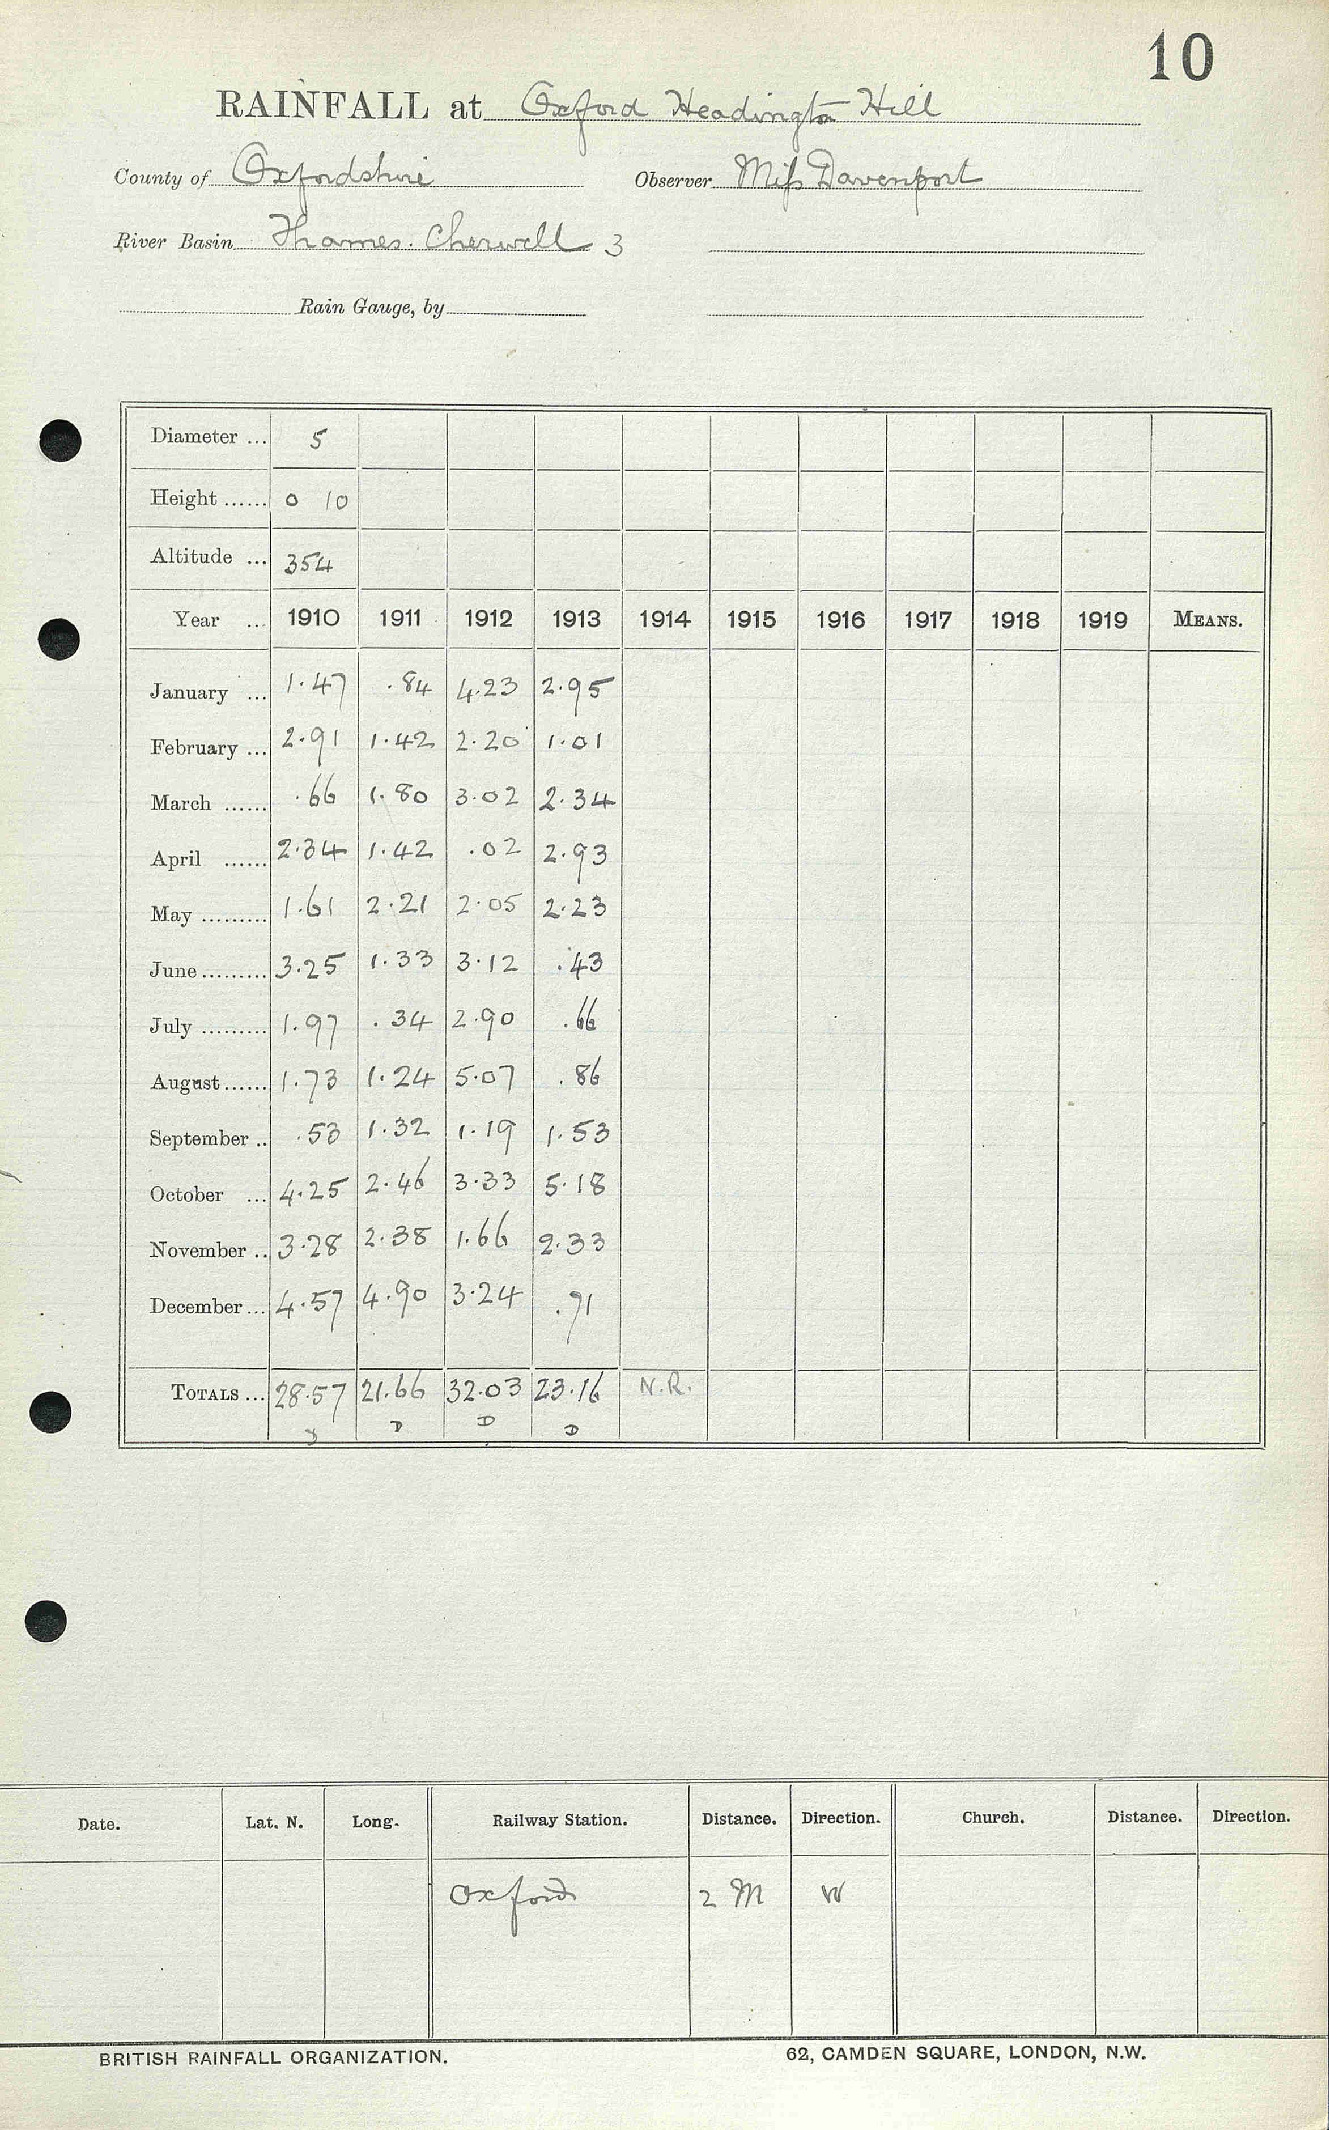 10
RAINFALL at Oxford Headington Hill
County of Oxfordshire Observer Miss Davenport
River Basin Thames. Cherwell 3
Rain Gauge, by
Diameter ... 5
Height ...... 0 10
Altitude ... 354
Year ... 1910 1911 1912 1913 1914 1915 1916 1917 1918 1919 MEANS.
January ... 1.47 .84 4.23 2.95
February ... 2.91 1.42 2.20 1.01
March ...... .66 1.80 3.02 2.34
April ...... 2.34 1.42 .02 2.93
May ......... 1.61 2.21 2.05 2.23
June ......... 3.25 1.33 3.12 .43
July ......... 1.97 .34 2.90 .66
August ...... 1.73 1.24 5.07 .86
September .. .53 1.32 1.19 1.53
October ... 4.25 2.46 3.33 5.18
November .. 3.28 2.38 1.66 2.33
December ... 4.57 4.90 3.24 .71
TOTALS ... 28.57 21.66 32.03 23.16 N.R.
D D D
Date. Lat. N. Long. Railway Station. Distance. Direction. Church. Distance. Direction.
Oxford 2 M W
BRITISH RAINFALL ORGANIZATION. 62, CAMDEN SQUARE, LONDON, N.W.